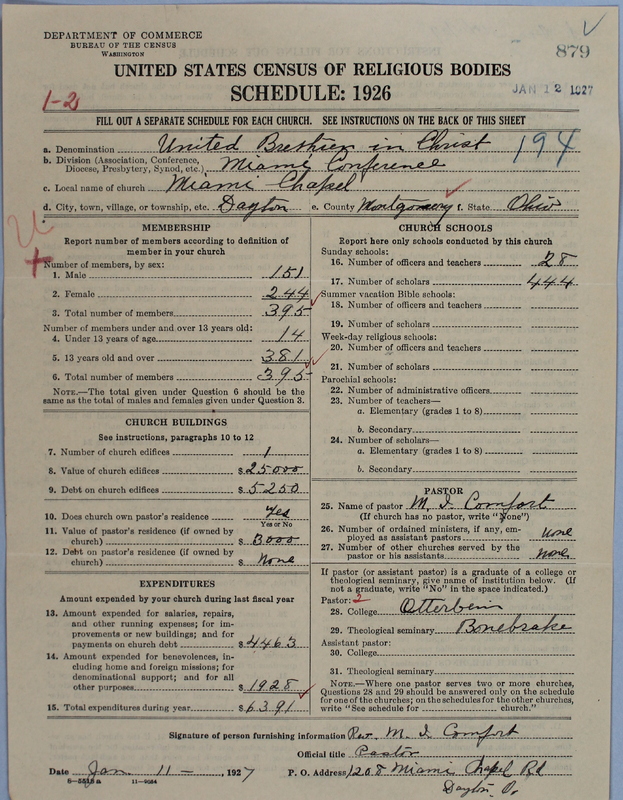 DEPARTMENT OF COMMERCE
BUREAU OF THE CENSUS
WASHINGTON
879
UNITED STATES CENSUS OF RELIGIOUS BODIES
SCHEDULE: 1926
JAN 12 1927
1-2
FILL OUT A SEPARATE SCHEDULE FOR EACH CHURCH. SEE INSTRUCTIONS ON THE BACK OF THIS SHEET
194
a. Denomination United Brethren in Christ
b. Division (Association, Conference, Diocese, Presbytery, Synod, etc.) Miami Conference
c. Local name of church Miami Chapel
d. City, town, village, or township, etc. Dayton e. County Montgomery f. State Ohio
MEMBERSHIP
Report number of members according to definition of
member in your church
Number of members, by sex:
1. Male 151
2. Female 244
3. Total number of members 395
Number of members under and over 13 years old:
4. Under 13 years of age 14
5. 13 years old and over 381
6. Total number of members 395
NOTE.—The total given under Question 6 should be
the same as the total of males and females given under Question 3.
CHURCH BUILDINGS
See instructions, paragraphs 10 to 12
7. Number of church edifices 1
8. Value of church edifices $25000
9. Debt on church edifices $5250
10. Does church own pastor's residence Yes
Yes or No
11. Value of pastor's residence (if owned by
church) $3000
12. Debt on pastor's residence (if owned by
church) $None
EXPENDITURES
Amount expended by your church during last fiscal year
13. Amount expended for salaries, repairs,
and other running expenses; for im-
provements or new buildings; and for
payments on church debt $4463
14. Amount expended for benevolences, in-
cluding home and foreign missions; for
denominational support; and for all
other purposes $1928
15. Total expenditures during year $6391
CHURCH SCHOOLS
Report here only schools conducted by this church
Sunday schools:
16. Number of officers and teachers 28
17. Number of scholars 444
Summer vacation Bible schools:
18. Number of officers and teachers
19. Number of scholars
Week-day religious schools:
20. Number of officers and teachers
21. Number of scholars
Parochial schools:
22. Number of administrative officers
23. Number of teachers—
a. Elementary (grades 1 to 8)
b. Secondary
24. Number of scholars—
a. Elementary (grades 1 to 8)
b. Secondary
PASTOR
25. Name of pastor M. I. Comfort
(If church has no pastor, write "None")
26. Number of ordained ministers, if any, em-
ployed as assistant pastors none
27. Number of other churches served by the
pastor or his assistants none
If pastor (or assistant pastor) is a graduate of a college or
theological seminary, give name of institution below. (If
not a graduate, write "No" in the space indicated.)
Pastor: 2
28. College Otterbein
29. Theological seminary Bonebrake
Assistant pastor:
30. College
31. Theological seminary
NOTE.—Where one pastor serves two or more churches,
Questions 28 and 29 should be answered only on the schedule
for one of the churches; on the schedules for the other churches,
write "See schedule for church."
Signature of person furnishing information Rev. M. I. Comfort
Official title Pastor
Date Jan. 11 —, 1927 P. O. Address 1208 Miami Chapel Rd
Dayton, O.
8—5518a 11—9084